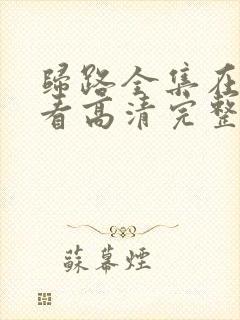 歸路全集在
看高清完整
蘇幕煙